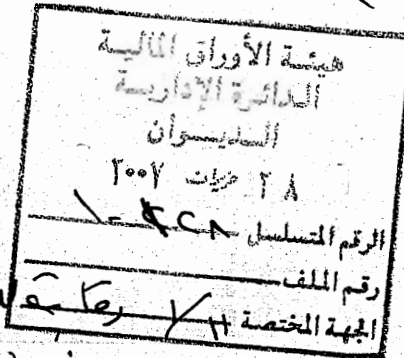 هيئة الأوراق المالية
الدائرة الإدارية
الديوان
٢٨ حزيران ٢٠٠٧
الرقم المتسلسل
رقم الملف
الجهة المختصة